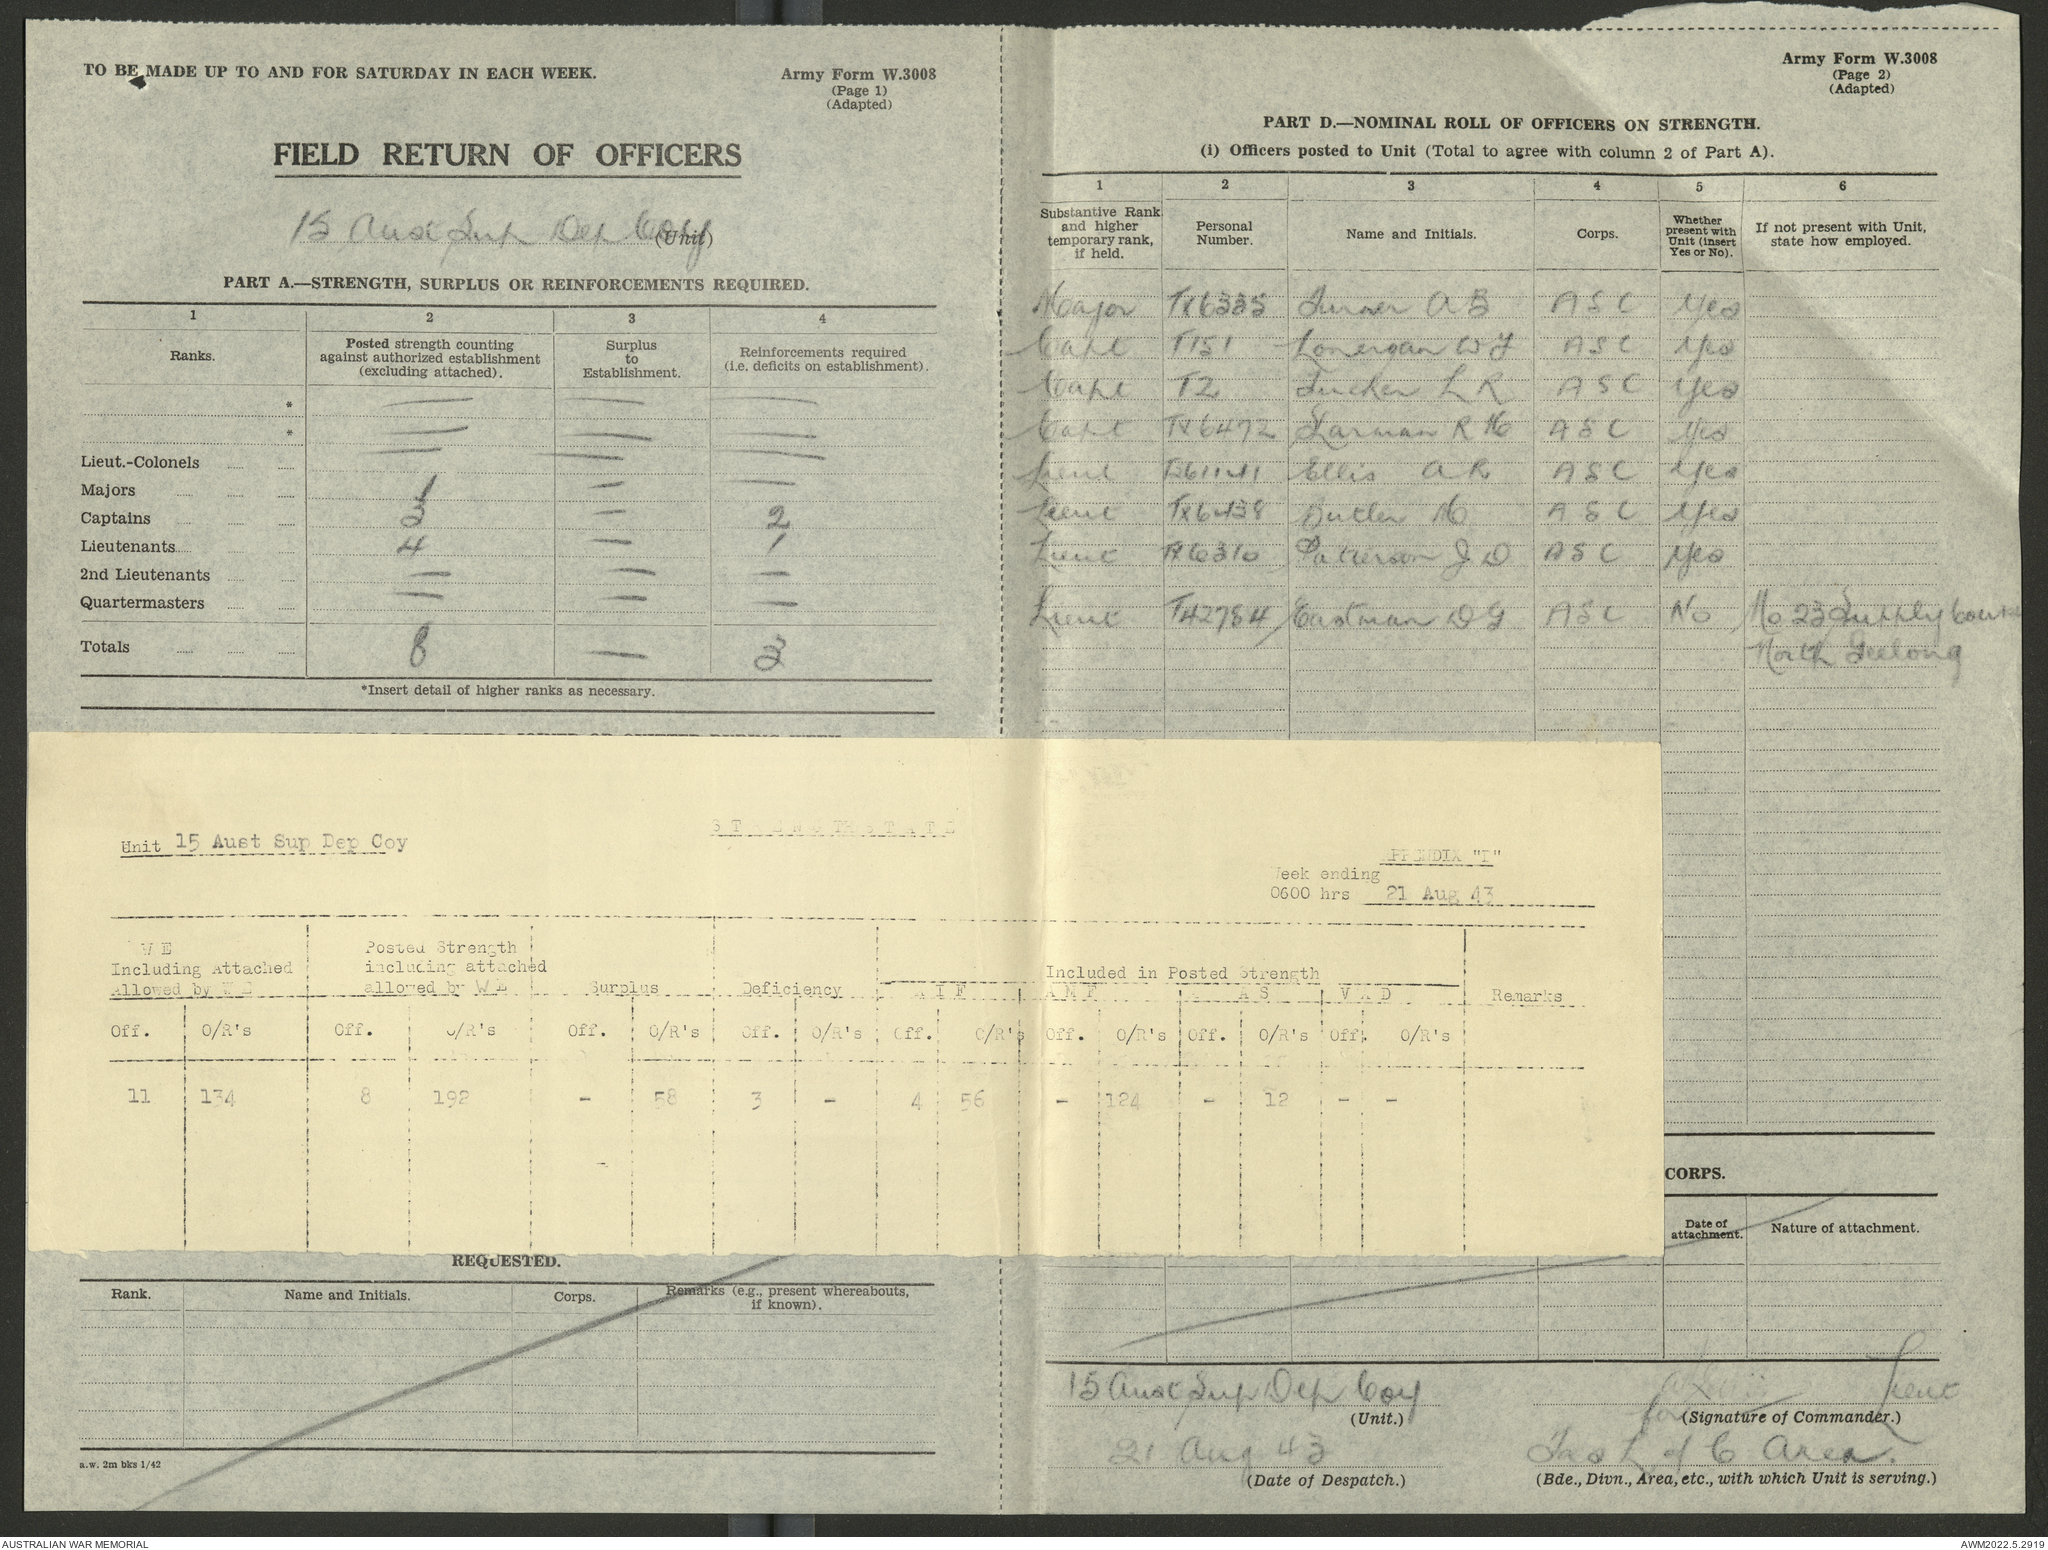 TO BE MADE UP TO AND FOR SATURDAY IN EACH WEEK.
Army Form W.3008
(Page 1)
(Adapted)
FIELD RETURN OF OFFICERS
15 Aust Sup Dep Coy
(Unit)
PART A.—STRENGTH, SURPLUS OR REINFORCEMENTS REQUIRED.
1 2 3 4
Ranks. Posted strength counting against authorized establishment (excluding attached). Surplus to Establishment. Reinforcements required (i.e. deficits on establishment).
* — — —
* — — —
Lieut.-Colonels — — —
Majors 1 — —
Captains 3 — 2
Lieutenants 4 — 1
2nd Lieutenants — — —
Quartermasters — — —
Totals 8 — 3
*Insert detail of higher ranks as necessary.
Unit 15 Aust Sup Dep Coy
STRENGTH STATE
PPENDIX "F"
Week ending
0600 hrs 21 Aug 43
W E Including Attached Allowed by W E
Posted Strength including attached allowed by W E
Surplus Deficiency
Included in Posted Strength
A I F A M F A S V A D Remarks
Off. O/R's Off. O/R's Off. O/R's Off. O/R's Off. O/R's Off. O/R's Off. O/R's Off. O/R's
11 134 8 192 - 58 3 - 4 56 - 124 - 12 - -
REQUESTED.
Rank. Name and Initials. Corps. Remarks (e.g., present whereabouts, if known).
a.w. 2m bks 1/42
Army Form W.3008
(Page 2)
(Adapted)
PART D.—NOMINAL ROLL OF OFFICERS ON STRENGTH.
(i) Officers posted to Unit (Total to agree with column 2 of Part A).
1 2 3 4 5 6
Substantive Rank and higher temporary rank, if held. Personal Number. Name and Initials. Corps. Whether present with Unit (insert Yes or No). If not present with Unit, state how employed.
Major TX6335 Turner A B ASC Yes
Capt T151 Lonergan W J ASC Yes
Capt T2 Tucker L R ASC Yes
Capt TX6472 Harman R H ASC Yes
Lieut Ellis A R ASC Yes
Lieut TX6438 Butler H ASC Yes
Lieut TX6310 Patterson J D ASC Yes
Lieut T42784 Eastman D G ASC No No 23 Supply Course
North Geelong
CORPS.
Date of attachment. Nature of attachment.
15 Aust Sup Dep Coy
(Unit.)
Lieut
for (Signature of Commander.)
21 Aug 43
(Date of Despatch.)
Tas L of C Area.
(Bde., Divn., Area, etc., with which Unit is serving.)
AUSTRALIAN WAR MEMORIAL
AWM2022.5.2919